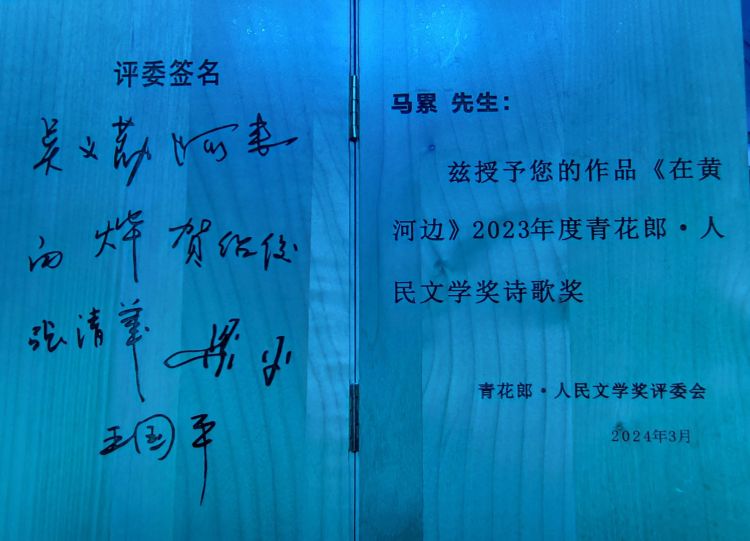 评委签名
吴义勤 河春
白烨 贺绍俊
张清华 梁
王国平
马累 先生：
兹授予您的作品《在黄
河边》2023年度青花郎·人
民文学奖诗歌奖
青花郎·人民文学奖评委会
2024年3月